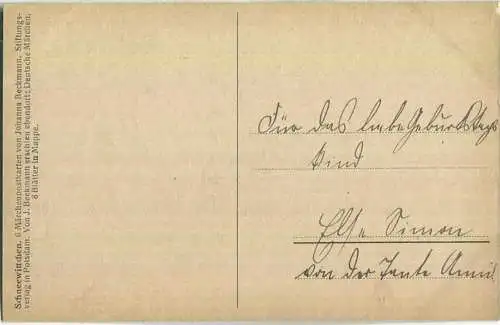 Schneewittchen. 6 Märchenpostkarten von Johanna Beckmann. Stiftungs-
verlag in Potsdam. Von J. Beckmann erschien ebendort: Deutsche Märchen,
8 Blätter in Mappe.
Für das liebe Geburtstags
kind
Else Simon
von der Tante Anni